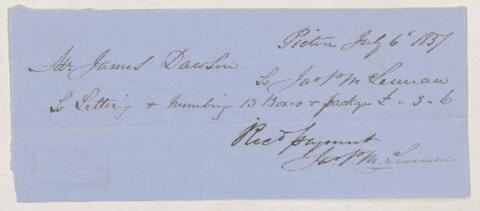 Pictou July 6th 1857
Mr James Dawson
To Jas P McLennan
To Lettering & Numbring 13 Boxes & packages £ - 3 - 6
Recd payment
Jas P. McLennan